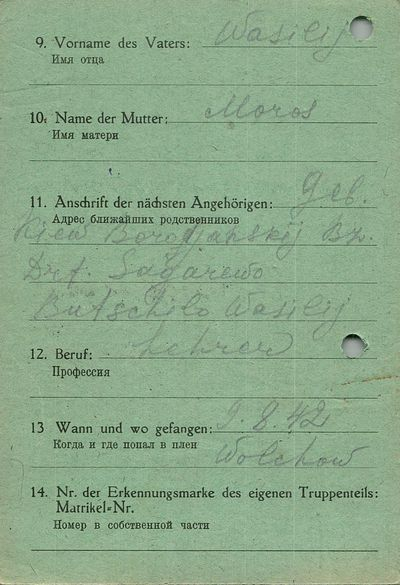 9. Vorname des Vaters: Wasilij
Имя отца
10. Name der Mutter: Moros
Имя матери
11. Anschrift der nächsten Angehörigen: Geb.
Адрес ближайших родственников
Kiew Borodjanskij Bz.
Drf. Sagarewo
Butschilo Wasilij
12. Beruf: Lehrer
Профессия
13 Wann und wo gefangen: 9.8.42
Когда и где попал в плен
Wolchow
14. Nr. der Erkennungsmarke des eigenen Truppenteils:
Matrikel=Nr.
Номер в собственной части